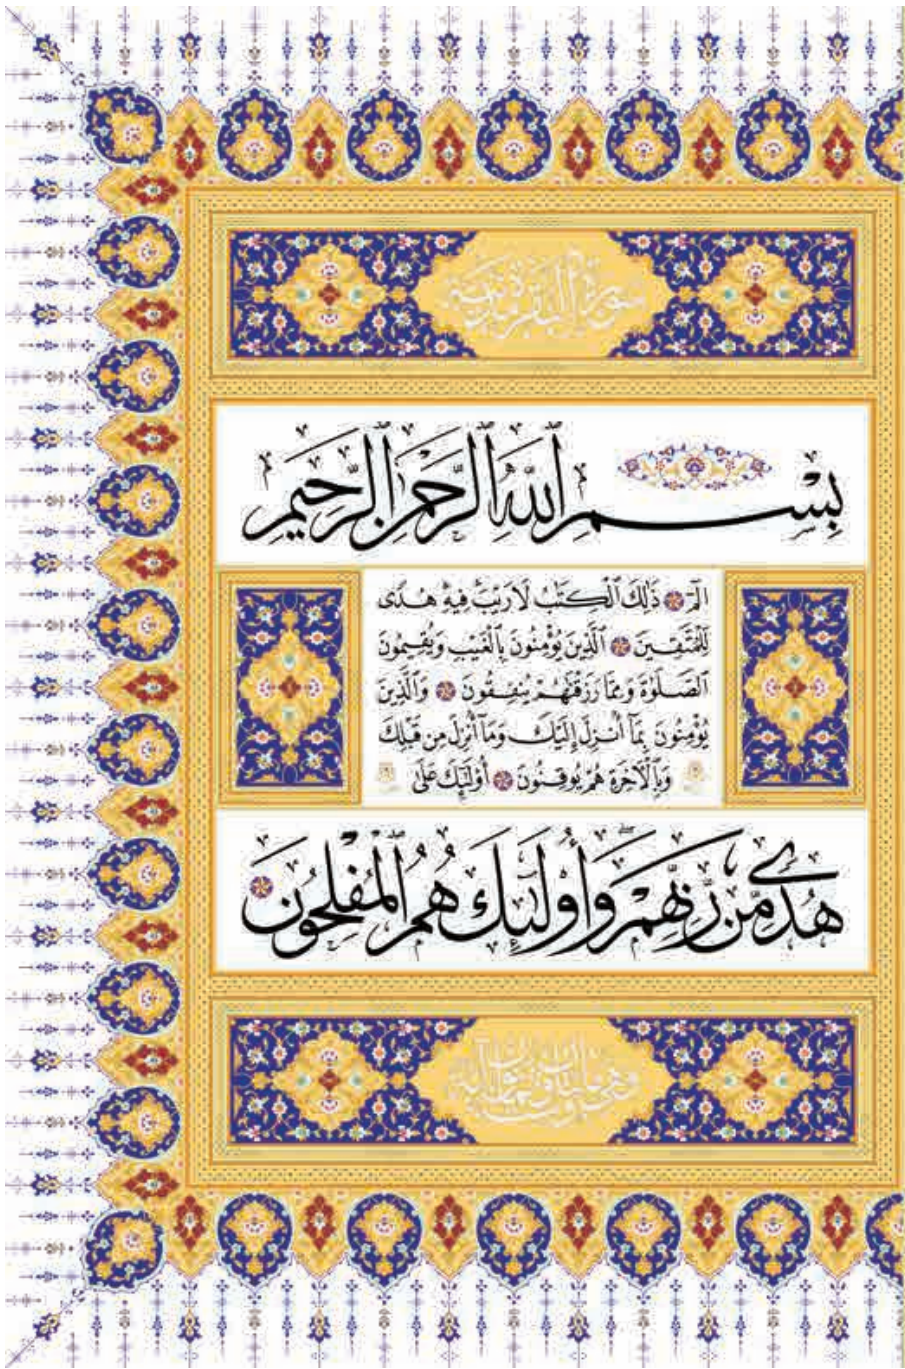 سورة البقرة مدنية
بِسْمِ ٱللَّهِ ٱلرَّحْمَٰنِ ٱلرَّحِيمِ
الٓمٓ ذَٰلِكَ ٱلْكِتَٰبُ لَا رَيْبَ فِيهِ هُدًى
لِّلْمُتَّقِينَ ٱلَّذِينَ يُؤْمِنُونَ بِٱلْغَيْبِ وَيُقِيمُونَ
ٱلصَّلَوٰةَ وَمِمَّا رَزَقْنَٰهُمْ يُنفِقُونَ وَٱلَّذِينَ
يُؤْمِنُونَ بِمَآ أُنزِلَ إِلَيْكَ وَمَآ أُنزِلَ مِن قَبْلِكَ
وَبِٱلْءَاخِرَةِ هُمْ يُوقِنُونَ أُو۟لَٰٓئِكَ عَلَىٰ
هُدًى مِّن رَّبِّهِمْ وَأُو۟لَٰٓئِكَ هُمُ ٱلْمُفْلِحُونَ